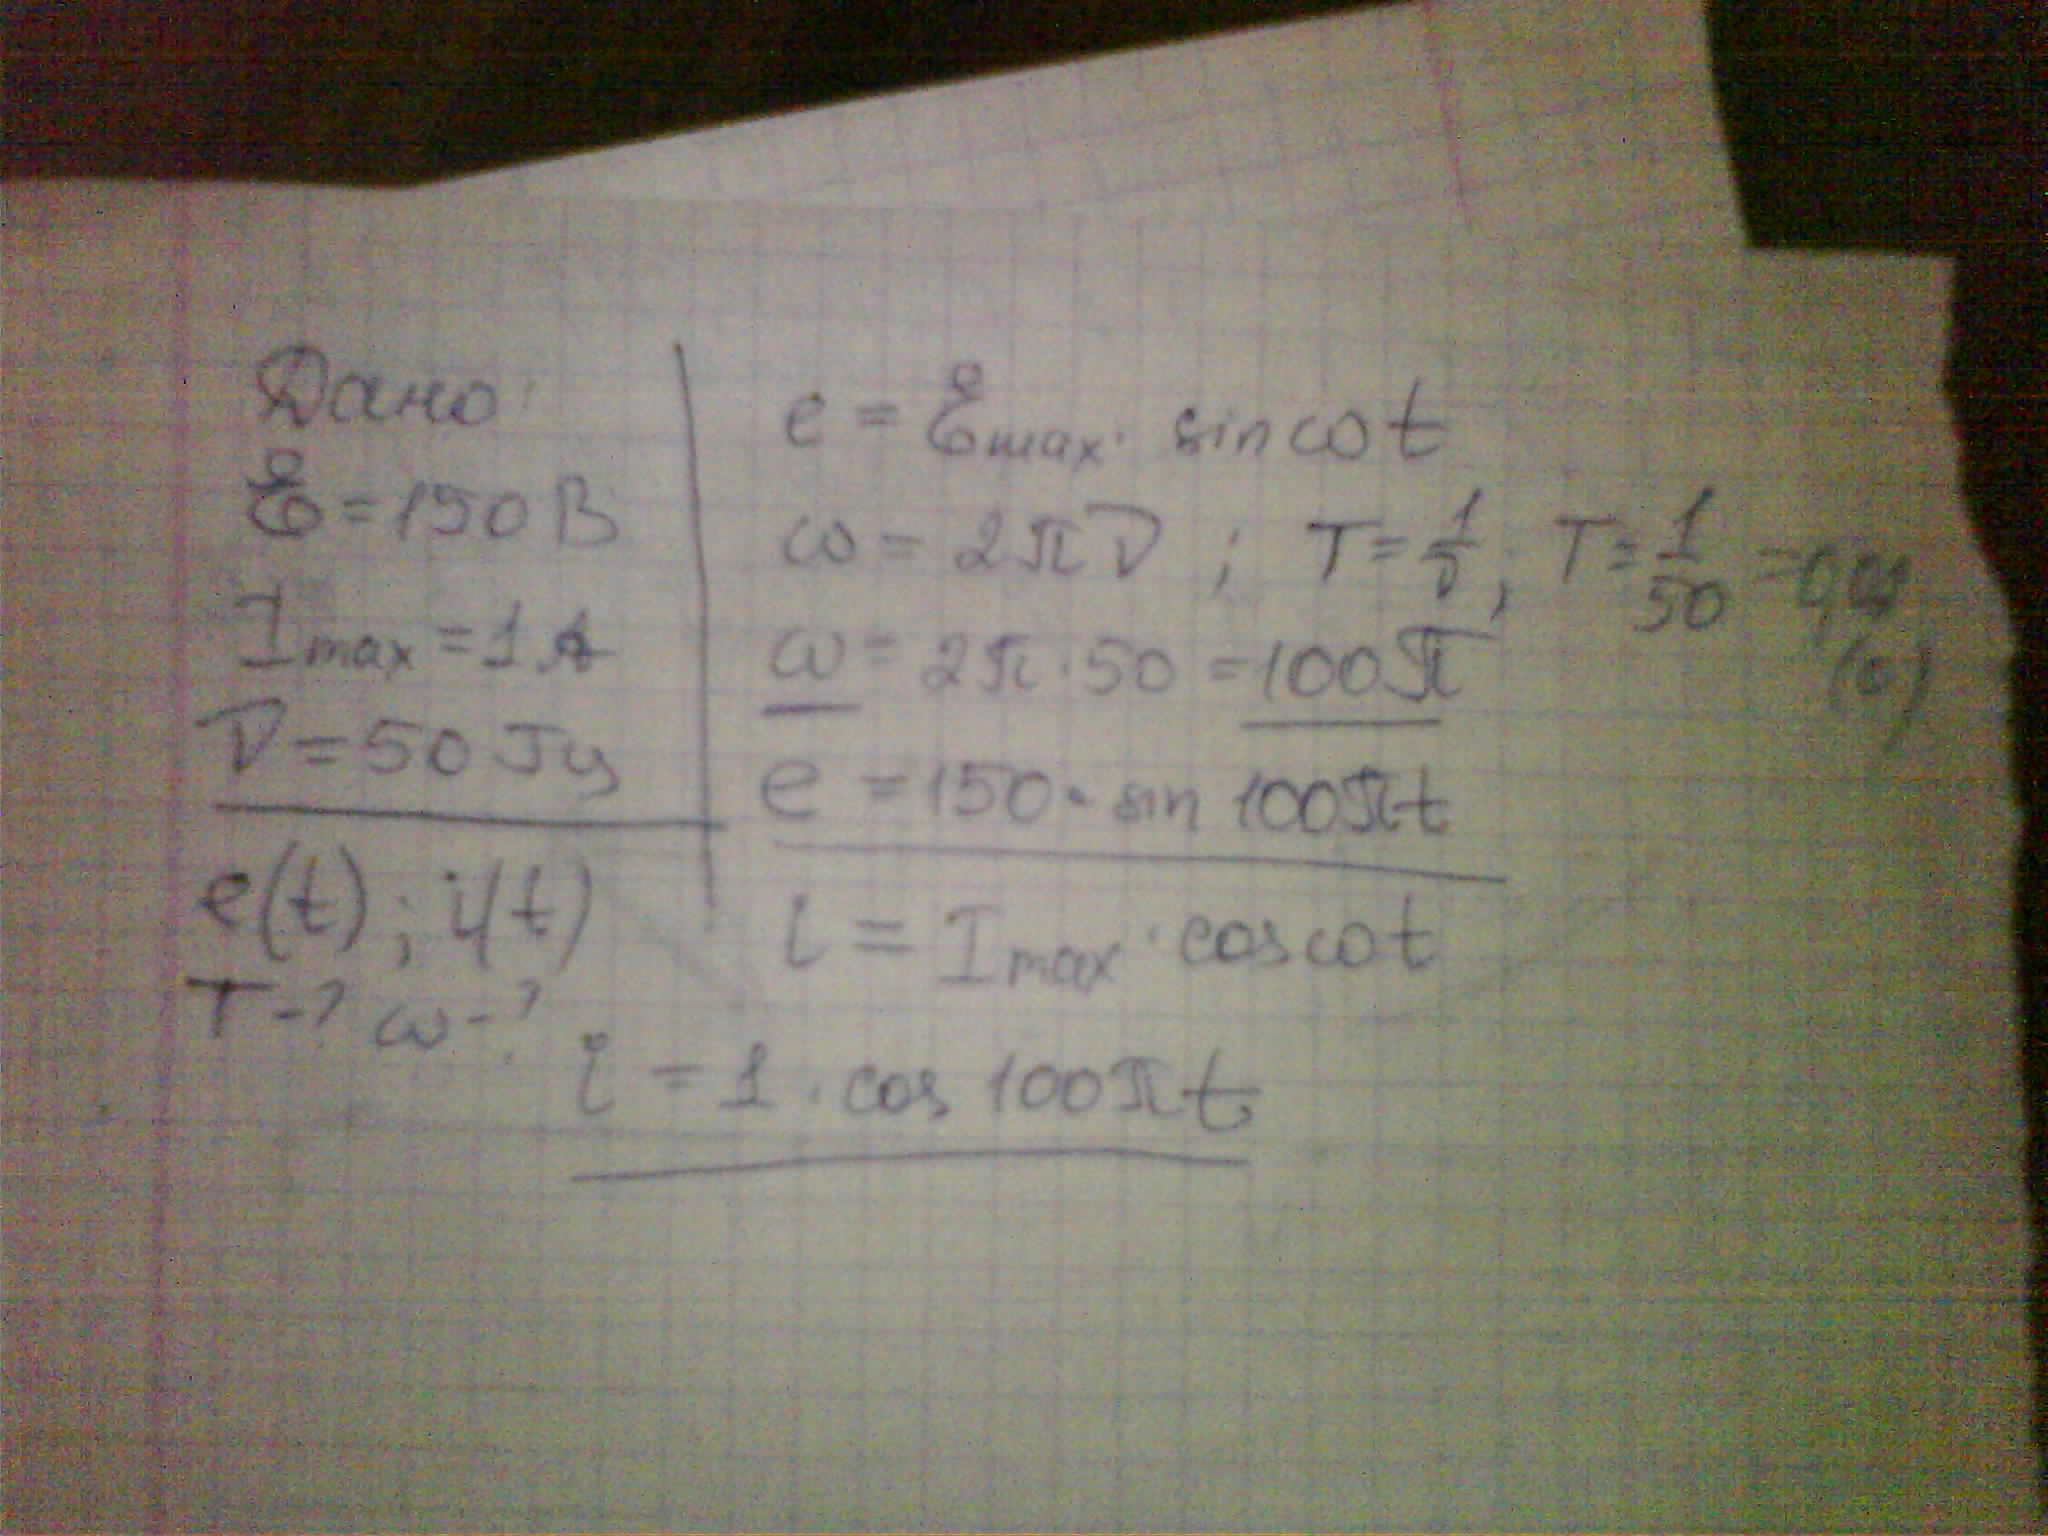 Дано:
Ɛ = 150 В
Imax = 1 А
ν = 50 Гц
e(t); i(t)
T-? ω-?
e = Ɛmax · sin ωt
ω = 2πν ; T = 1/ν ; T = 1/50 = 0,02 (с)
ω = 2π · 50 = 100π
e = 150 · sin 100πt
i = Imax · cos ωt
i = 1 · cos 100πt